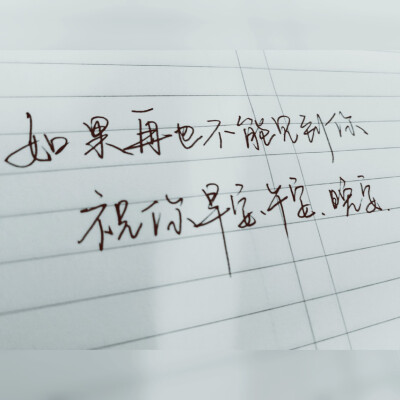 如果再也不能见到你
祝你早安、午安、晚安.